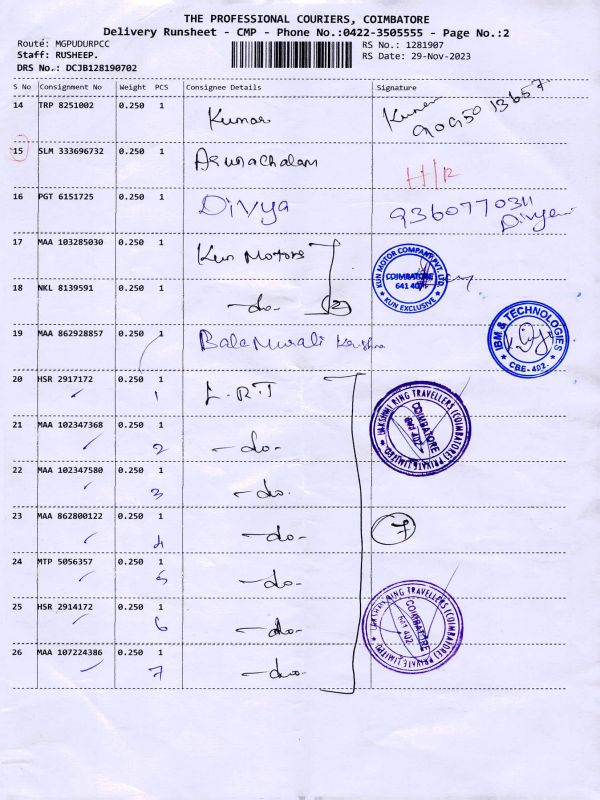 THE PROFESSIONAL COURIERS, COIMBATORE
Delivery Runsheet - CMP - Phone No.:0422-3505555 - Page No.:2
Route: MGPUDURPCC
RS No.: 1281907
Staff: RUSHEEP.
RS Date: 29-Nov-2023
DRS No.: DCJB128190702
S No Consignment No Weight PCS Consignee Details Signature
14 TRP 8251002 0.250 1 Kumar Kumar
15 SLM 333696732 0.250 1 Arunachalam H/R
16 PGT 6151725 0.250 1 Divya 9360770311
Divya
17 MAA 103285030 0.250 1 Kun Motors
KUN MOTOR COMPANY PVT. LTD.
COIMBATORE
641 407
* KUN EXCLUSIVE *
18 NKL 8139591 0.250 1 -do- 2
19 MAA 862928857 0.250 1 Bala Murali Krishna
IBM & TECHNOLOGIES
* CBE-402. *
20 HSR 2917172 0.250 1 1 L.R.T
LAKSHMI RING TRAVELLERS (COIMBATORE) PRIVATE LIMITED
COIMBATORE
641 402
21 MAA 102347368 0.250 1 2 -do-
22 MAA 102347580 0.250 1 3 -do-
23 MAA 862800122 0.250 1 4 -do- 7
24 MTP 5056357 0.250 1 5 -do-
25 HSR 2914172 0.250 1 6 -do-
LAKSHMI RING TRAVELLERS (COIMBATORE) PRIVATE LIMITED
COIMBATORE
641 402
26 MAA 107224386 0.250 1 7 -do-